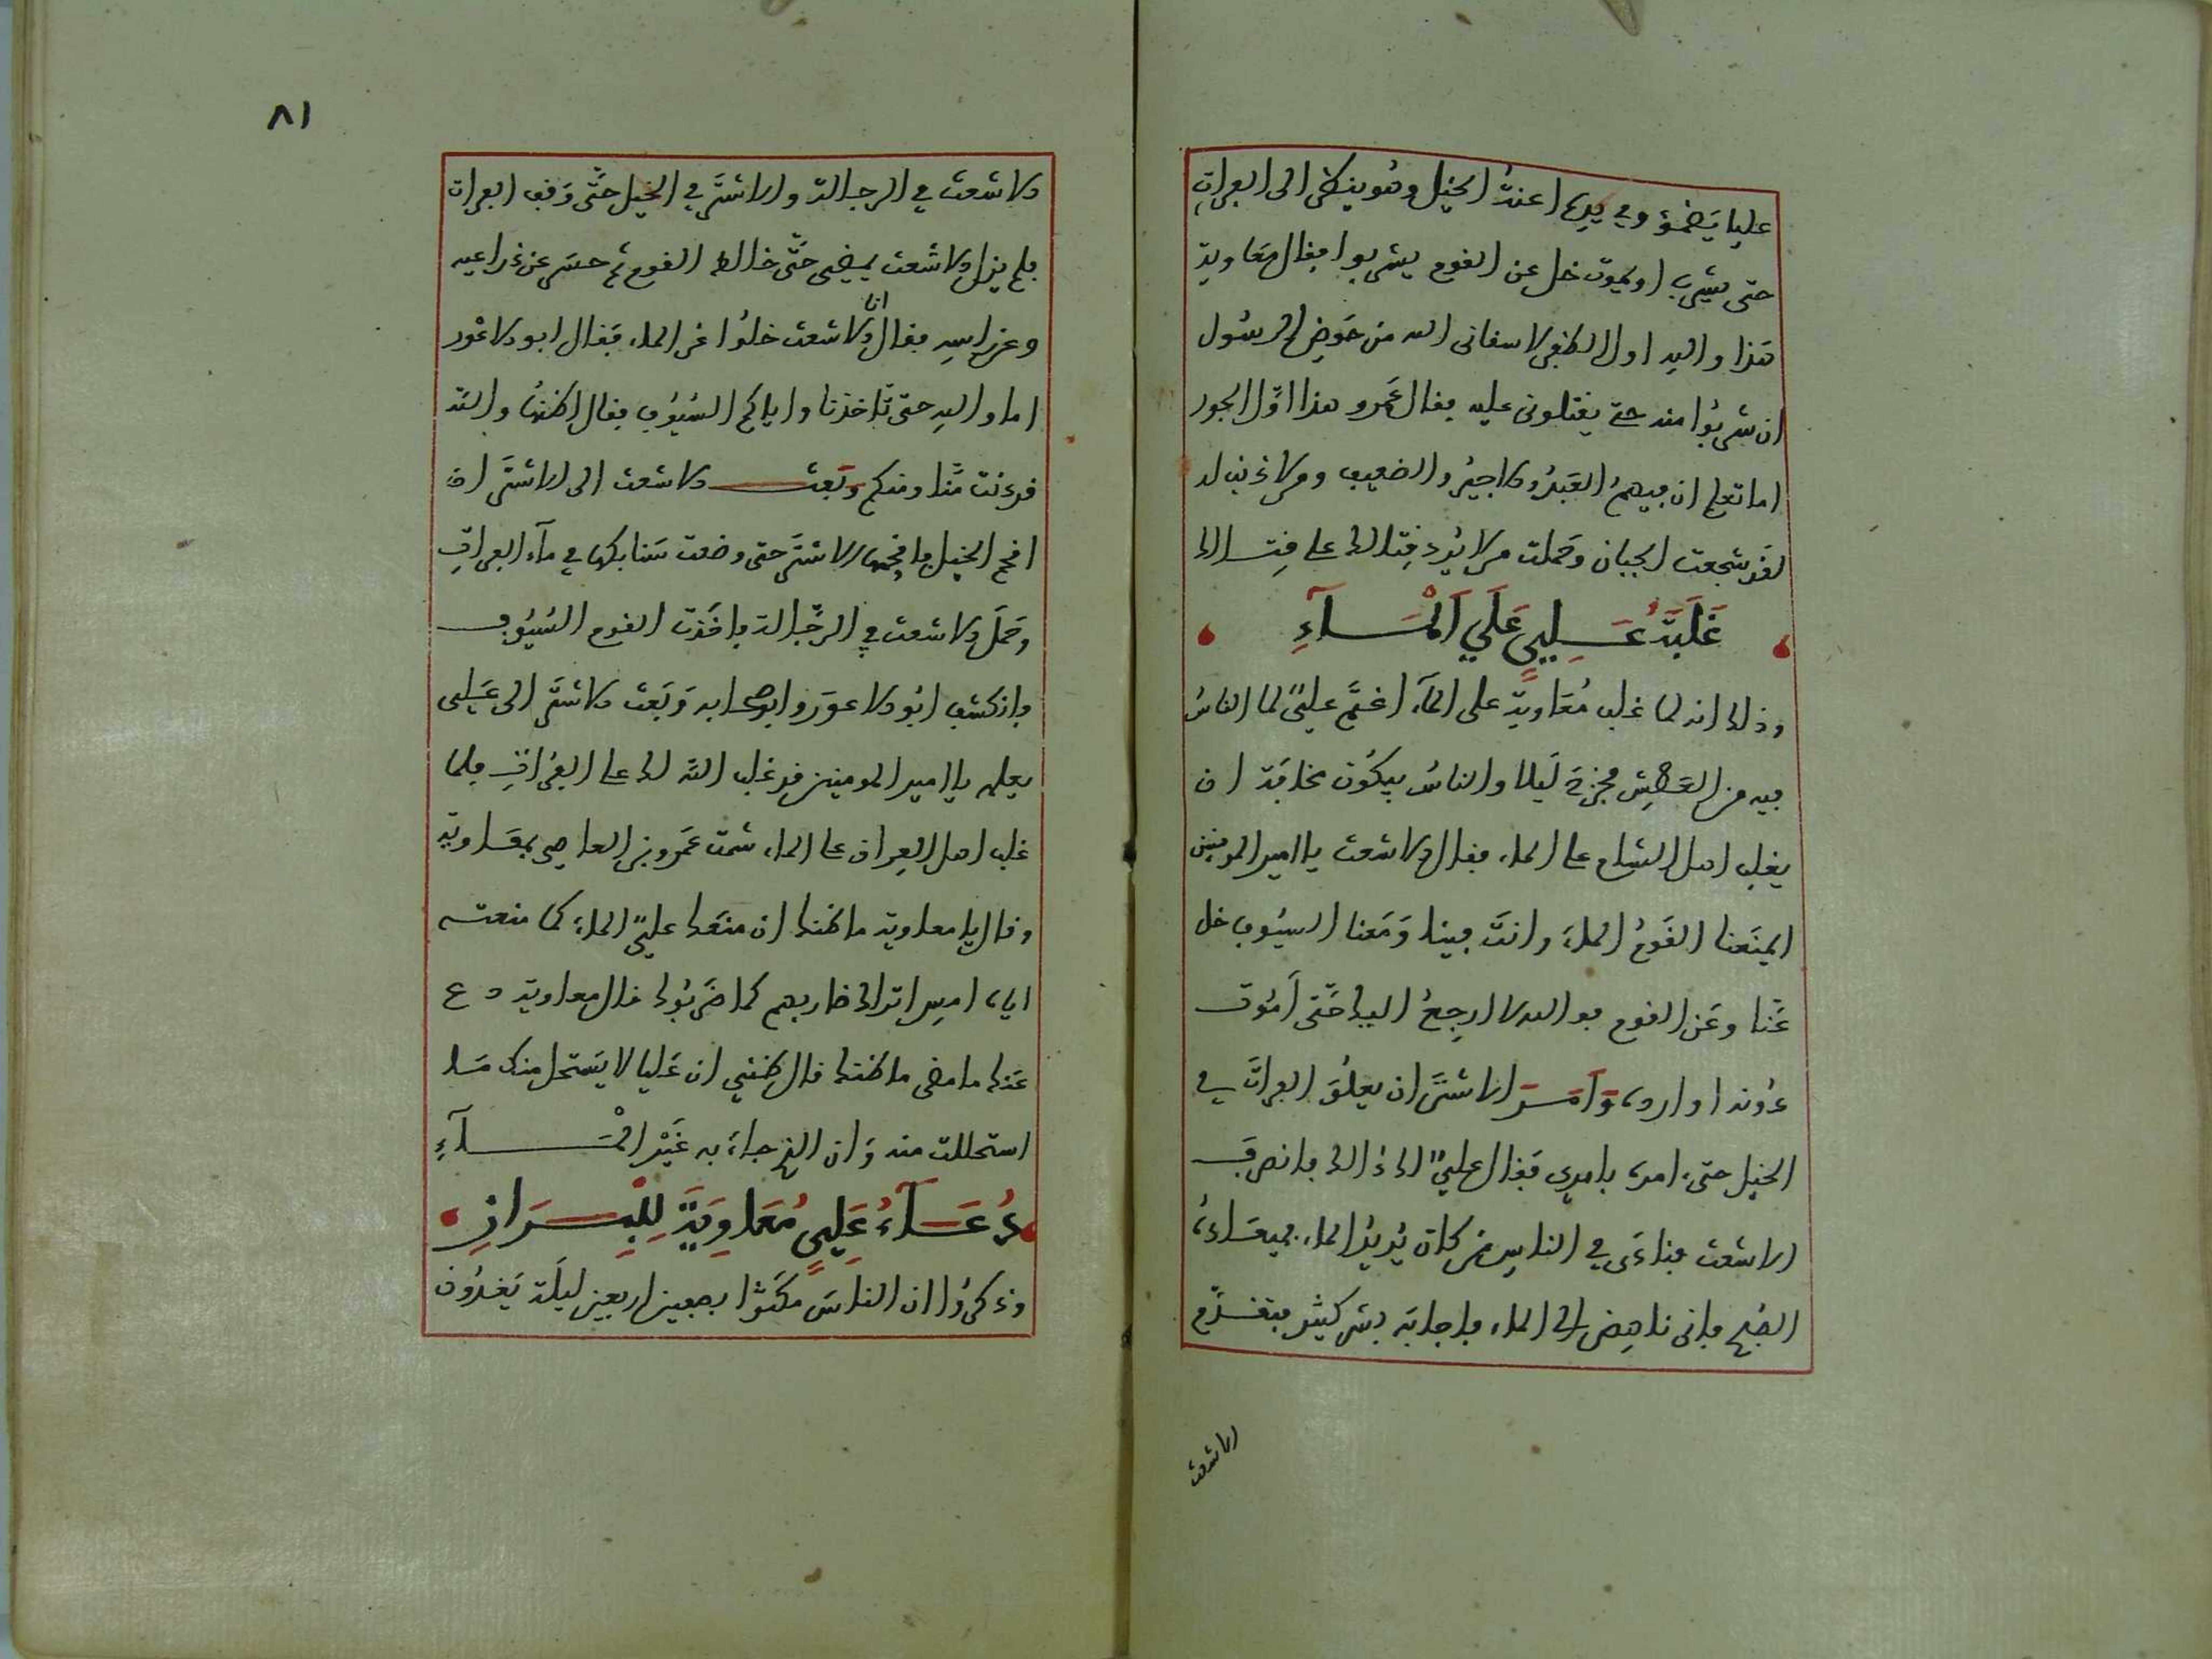 عليا يَضْمَؤ وفي يده اعنةُ الخيل وهو ينظر الى الفراتِ
حتى يشرب او يموت خل عن القوم يشربوا فقال معاوية
هذا واللهِ اول الظفر لا سقاني الله من حَوضِ الرسُول
ان شربُوا منه حتى يغلبوني عليه فقال عَمرو هذا اوّل الجور
اما تعلم ان فيهمُ العَبدُ والاجيرُ والضعيف ومن لا ذنب له
لقد شجعت الجبان وحَملت من لا يُريد قِتالك على قِتالك
غَلَبَةُ عَلِيٍ عَلَي اَلْمَآءِ
وذلك انه لما غلب مُعَاوية على المآء اغتمَّ عليٌ لما الناسُ
فيه من العَطِش فخرجَ لَيلا والناسُ يبكُون مخافَة ان
يغلب اهل الشام على الماء فقال الاشعث يا امير المومنين
ايمنَعنا القَومُ الماءَ وانتَ فينا وَمَعنا السيُوف خل
عَنّا وعَن القوم فوالله لا ارجِعُ اليك حَتّى اَمُوت
دُونه او ارده وَاَمَرَ الاشتَرَ ان يعلُوَ الفراتَ في
الخيل حتى امره بامري فقال عليٌ ذلك اليك فانصرفَ
الاشعث فنادَى في الناسِ من كان يُريدُ الماء فميعَادهُ
الصُبح فاني ناهِض الى الماء فاجابَه بشر كثير فتقدّم
الاشعث
٨١
الاشعث في الرجالة والاشتَر في الخيل حتَّى وَقف الفرات
فلم يزل الاشعث يمضي حَتّى خالط القوم ثم حسَر عن ذراعيه
وعن راسِه فقال انا الاشعث خلُوا عن الماء فَقال ابو الاعْور
اما واللهِ حتى تَاخذنا واياكم السُيُوف فقال اظنها والله
قد دنت مِنّا ومنكم وبَعث الاشعث الى الاشتَر ان
اقحم الخيل فاقحمها الاشتَر حتى وضعت سَنابكها في مآء الفراتِ
وحَمَل الاشعث في الرجّالة فاخَذت القوم السُيُوف
فانكشف ابُو الاعوَر واصحابه وَبَعث الاشتَر الى عَلِي
يعلمه يا امير المومنين قد غلب الله لك على الفُراتِ فلما
غلب اهل العِراق على الماء شمت عَمرو بن العاصِي بمعَاوية
وقال يا معاوية ما ظنك ان منعَك عليٌ الماءَ كما منعته
اياه امسِ اتراك ضاربهم كما ضَربُوك قال معاوية دع
عَنك ما مضى ما ظنك قال ظنني ان عَليا لا يَستحل منك مَا
استحللت منه وَان الذي جاءَ به غَيْر الْمَآءِ
دُعَآءُ عَلِيٍ مُعَاوِيَةَ لِلْبِرَازِ
وذكرُوا ان الناسَ مكثوا بصفين اربعين ليلَة يَغدُون